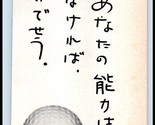 あなたの能力は
なければ、
でせう。